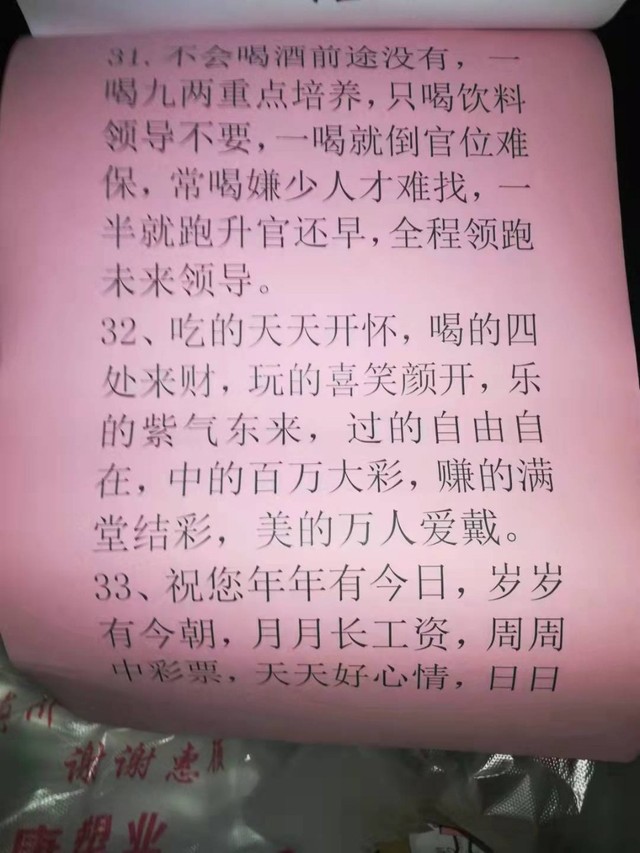 31、不会喝酒前途没有，一
喝九两重点培养，只喝饮料
领导不要，一喝就倒官位难
保，常喝嫌少人才难找，一
半就跑升官还早，全程领跑
未来领导。
32、吃的天天开怀，喝的四
处来财，玩的喜笑颜开，乐
的紫气东来，过的自由自
在，中的百万大彩，赚的满
堂结彩，美的万人爱戴。
33、祝您年年有今日，岁岁
有今朝，月月长工资，周周
中彩票，天天好心情，日日
谢谢惠顾
塑业